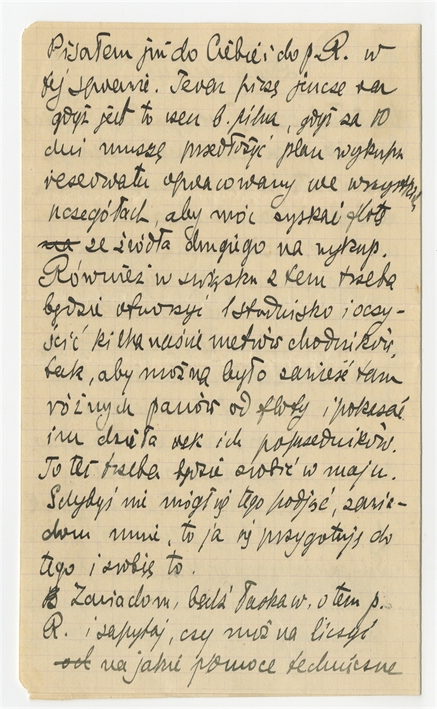 Pisałem już do Ciebie i do p. R. w
tej sprawie. Teraz piszę jeszcze raz
gdyż jest to rzecz b. pilna, gdyż za 10
dni muszę przedłożyć plan wykupu
rezerwatu opracowany we wszystkich
szczegółach, aby móc zyskać flotę
na ze źródła drugiego na wykup.
Również w związku z tem trzeba
będzie otworzyć 1 stodnisko i oczy-
ścić kilkanaście metrów chodników,
tak, aby można było zanieść tam
różnych panów od floty i pokazać
im dzieła rąk ich poprzedników.
To też trzeba będzie zrobić w maju.
Gdybyś nie mógł się tego podjąć, zawia-
dom mnie, to ja się przygotuję do
tego i zrobię to.
Zawiadom, bądź łaskaw, o tem p.
R. i zapytaj, czy można liczyć
od na jakie pomoce techniczne